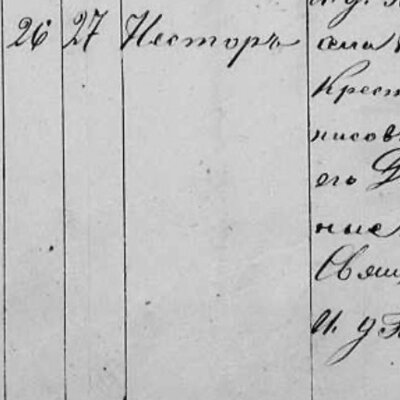 26 27 Несторъ
села
Крест
нисов
его
ные
Свящ
И. у